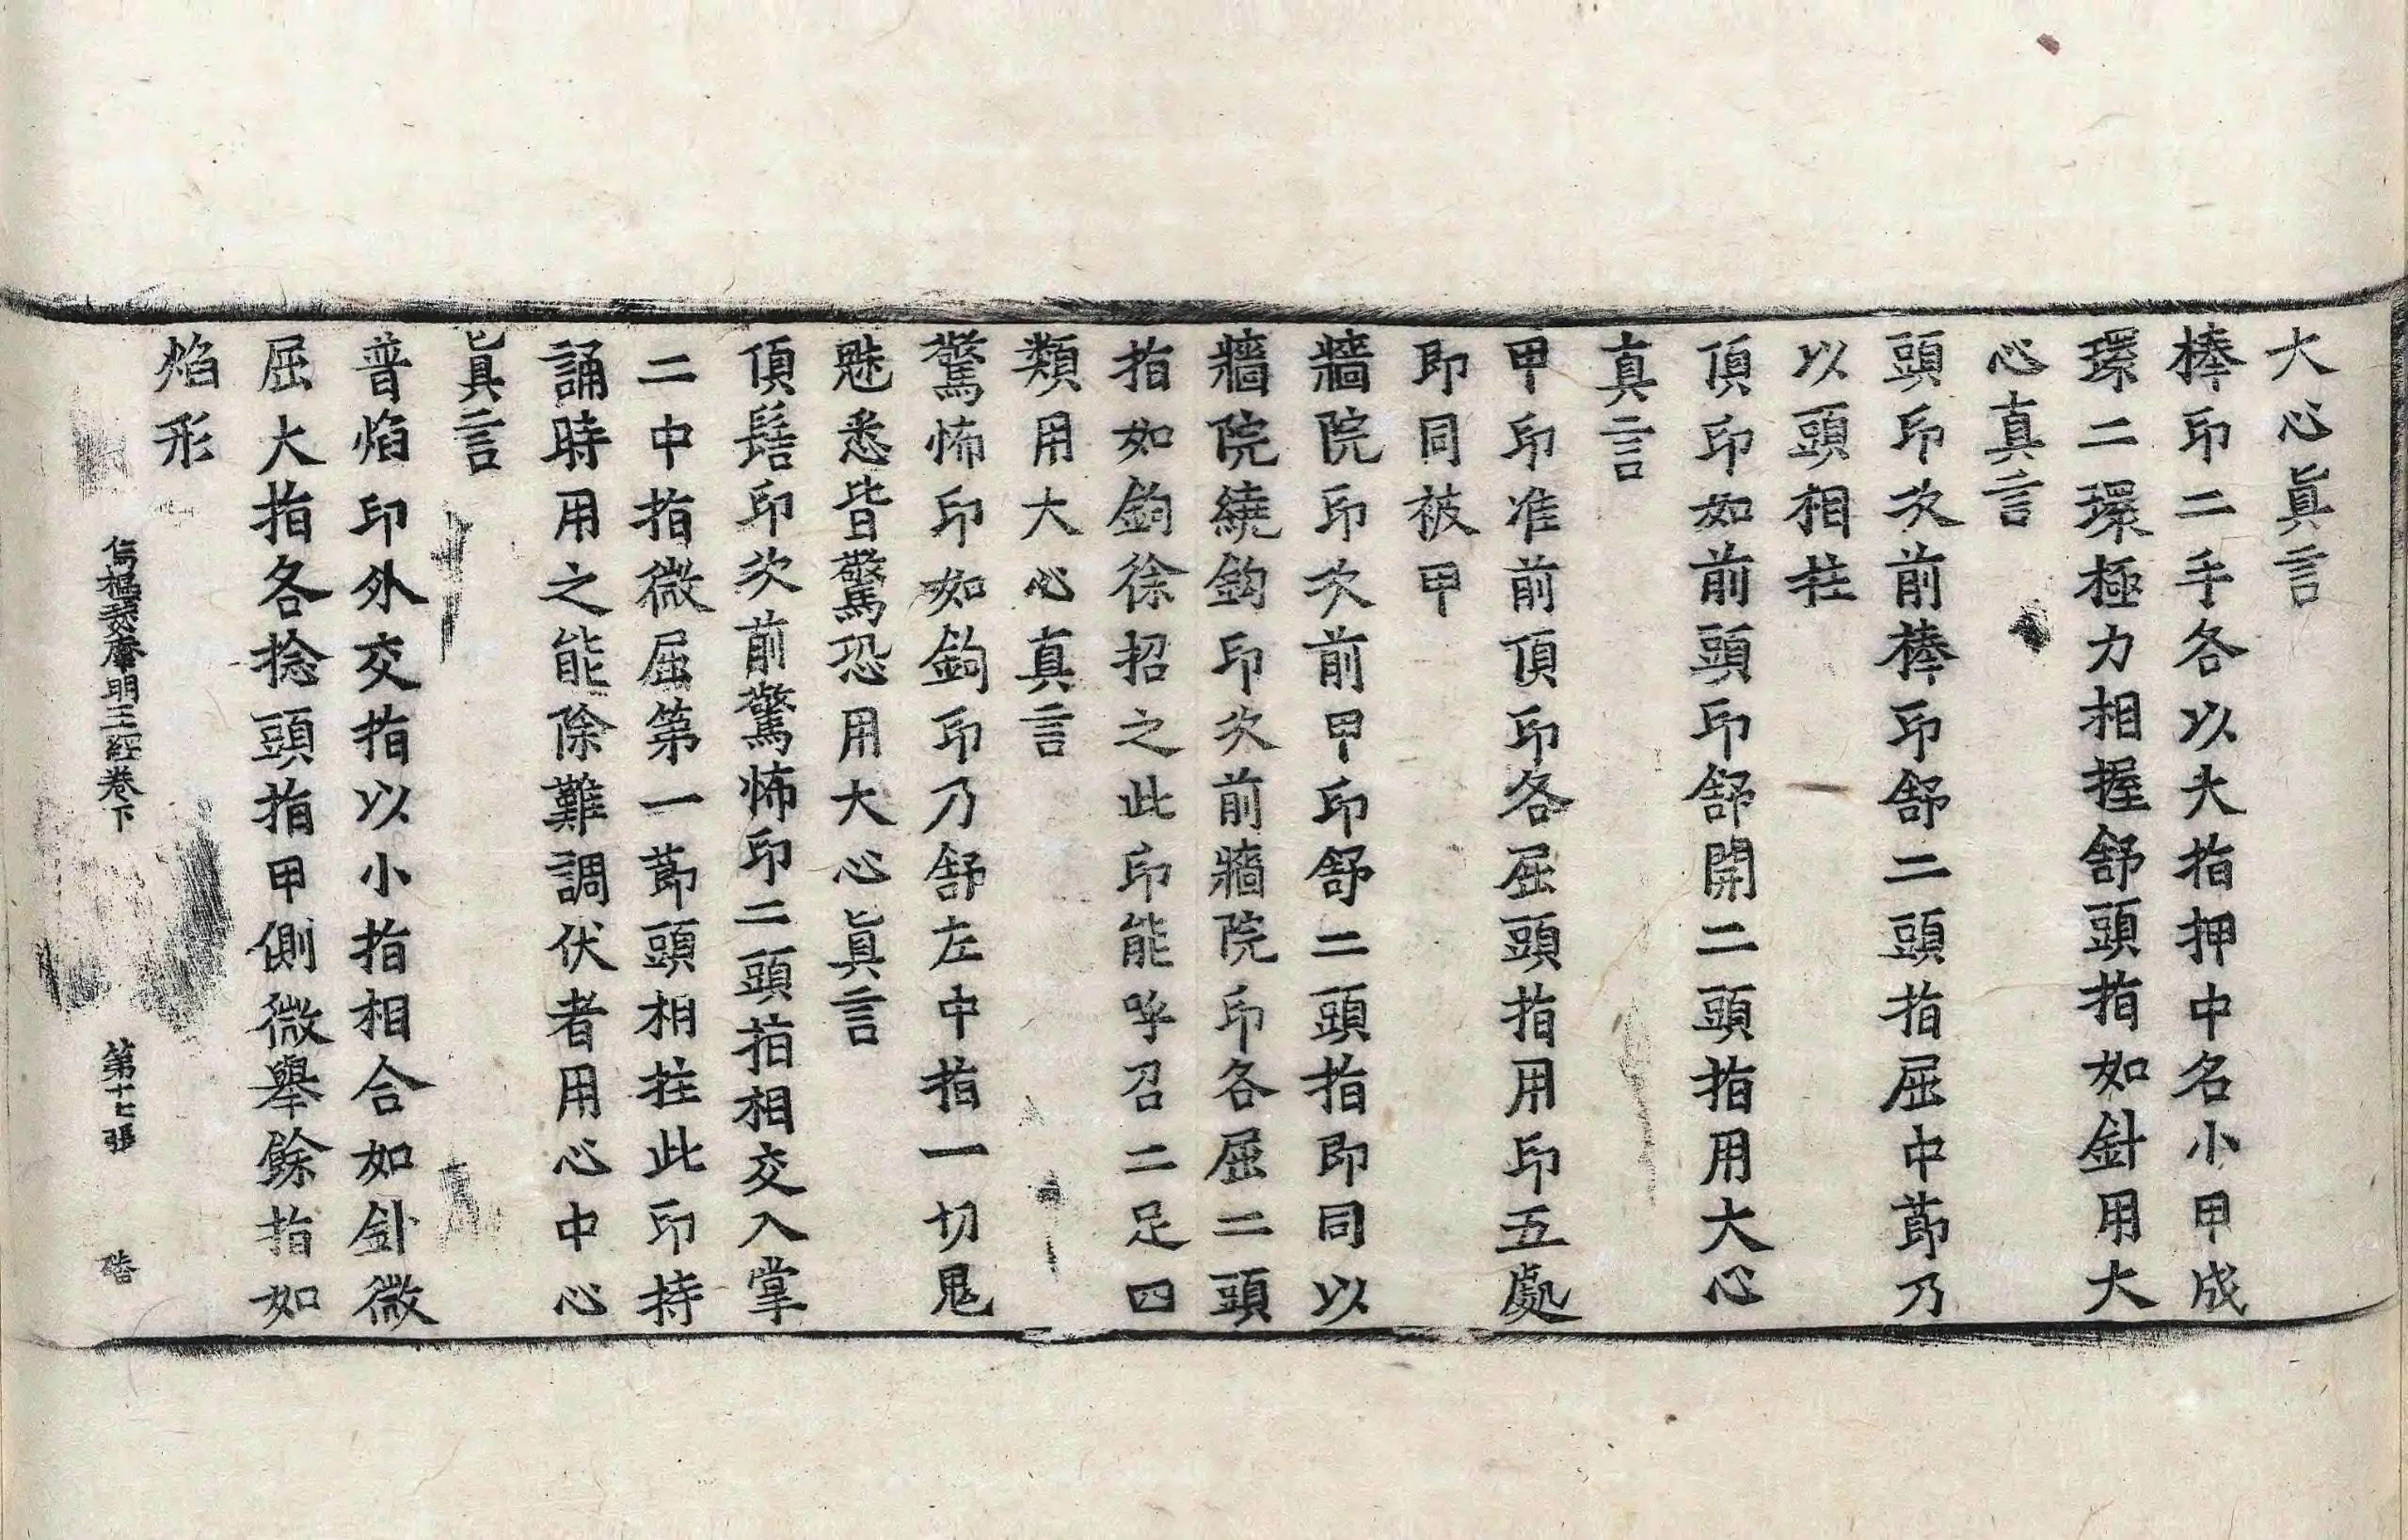 大心眞言
棒印二手各以大指押中名小甲成
環二環極力相握舒頭指如針用大
心真言
頭印次前棒印舒二頭指屈中莭乃
以頭相拄
頂印如前頭印舒開二頭指用大心
真言
甲印准前頂印各屈頭指用印五處
即同被甲
牆院印次前甲印舒二頭指即同以
牆院繞鉤印次前牆院印各屈二頭
指如鉤徐招之此印能呼召二足四
類用大心真言
驚怖印如鉤印乃舒左中指一切鬼
魅悉皆驚恐用大心眞言
頂髻印次前驚怖印二頭指相交入掌
二中指微屈第一莭頭相拄此印持
誦時用之能除難調伏者用心中心
眞言
普焰印外交指以小指相合如針微
屈大指各捻頭指甲側微舉餘指如
焰形
烏樞瑟摩明王經卷下 第十七張